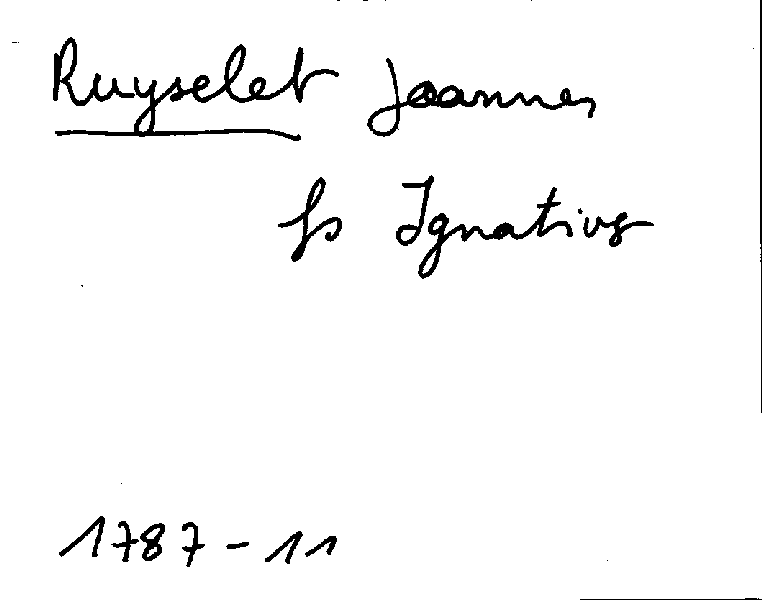 Ruyselet Joannes
fs Ignatius
1787-11